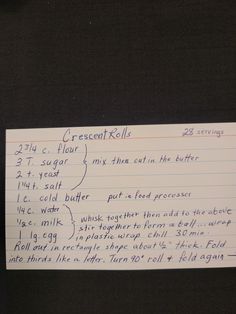 Crescent Rolls 28 servings
2 3/4 c. flour
3 T. sugar mix then cut in the butter
2 t. yeast
1 1/4 t. salt
1 c. cold butter put in food processer
1/4 c. water
1/2 c. milk whisk together then add to the above
stir together to form a ball... wrap
1 lg. egg in plastic wrap chill 30 min.
Roll out in rectangle shape about 1/2" thick. Fold
into thirds like a letter. Turn 90° roll & fold again —